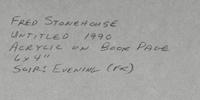 Fred Stonehouse
Untitled 1990
Acrylic on Book Page
6 x 4"
Soiri Evening (FR)